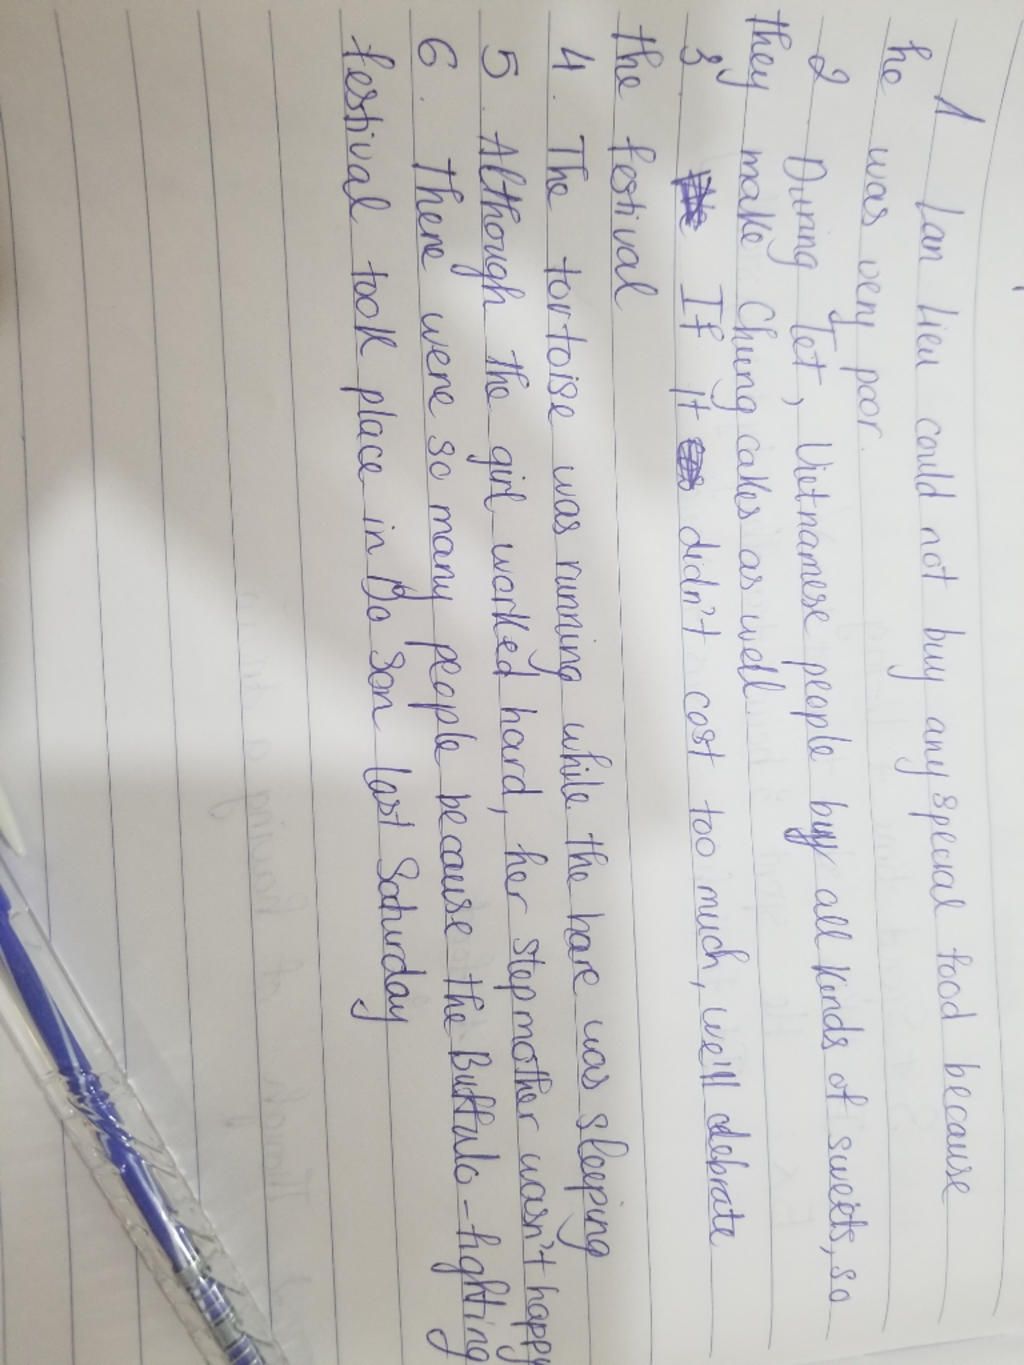 1 Lan Lieu could not buy any special food because
he was very poor.
2 During Tet, Vietnamese people buy all kinds of sweets, so
they make Chung cakes as well.
3. If it didn't cost too much, we'll celebrate
the festival
4. The tortoise was running while the hare was sleeping
5. Although the girl worked hard, her stepmother wasn't happy
6. There were so many people because the Buffalo-fighting
festival took place in Do Son last Saturday